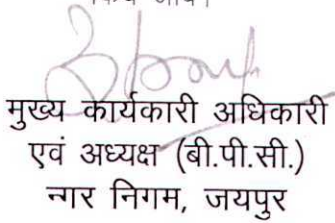 मुख्य कार्यकारी अधिकारी
एवं अध्यक्ष (बी.पी.सी.)
नगर निगम, जयपुर